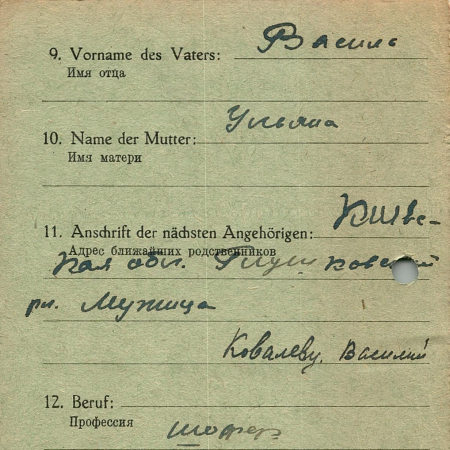 Василь
9. Vorname des Vaters:
Имя отца
Ульяна
10. Name der Mutter:
Имя матери
Киев-
11. Anschrift der nächsten Angehörigen:
Адрес ближайших родственников
кая обл.
Мужица
Ковалеву Василий
12. Beruf:
Профессия
шофер